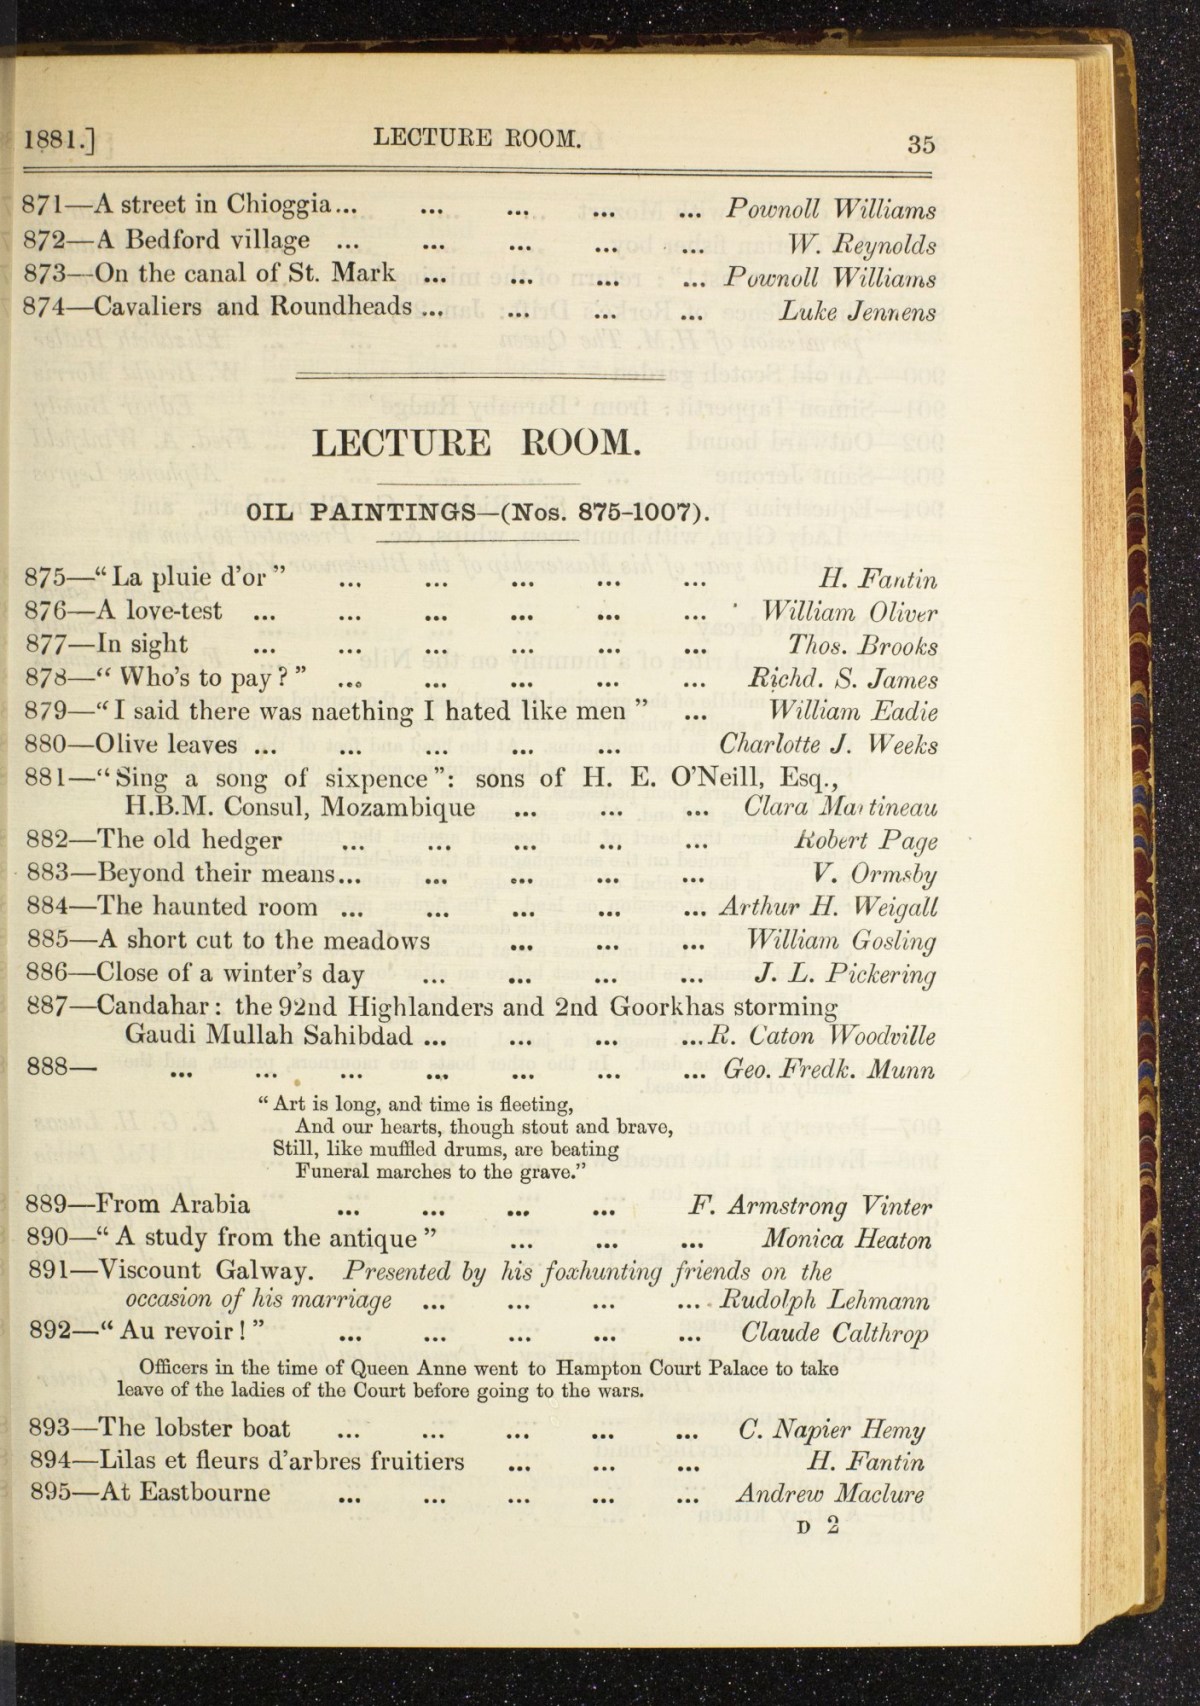 1881.] LECTURE ROOM. 35
871—A street in Chioggia... ... ... ... ... Pownoll Williams
872—A Bedford village ... ... ... ... ... W. Reynolds
873—On the canal of St. Mark ... ... ... ... Pownoll Williams
874—Cavaliers and Roundheads ... ... ... ... Luke Jennens
LECTURE ROOM.
OIL PAINTINGS—(Nos. 875-1007).
875—“La pluie d'or” ... ... ... ... ... H. Fantin
876—A love-test ... ... ... ... ... ... William Oliver
877—In sight ... ... ... ... ... ... Thos. Brooks
878—“Who's to pay?” ... ... ... ... ... Richd. S. James
879—“I said there was naething I hated like men” ... William Eadie
880—Olive leaves ... ... ... ... ... Charlotte J. Weeks
881—“Sing a song of sixpence”: sons of H. E. O'Neill, Esq.,
H.B.M. Consul, Mozambique ... ... ... Clara Martineau
882—The old hedger ... ... ... ... ... Robert Page
883—Beyond their means... ... ... ... ... V. Ormsby
884—The haunted room ... ... ... ... ... Arthur H. Weigall
885—A short cut to the meadows ... ... ... William Gosling
886—Close of a winter's day ... ... ... ... J. L. Pickering
887—Candahar: the 92nd Highlanders and 2nd Goorkhas storming
Gaudi Mullah Sahibdad ... ... ... ...R. Caton Woodville
888— ... ... ... ... ... ... ... Geo. Fredk. Munn
“Art is long, and time is fleeting,
And our hearts, though stout and brave,
Still, like muffled drums, are beating
Funeral marches to the grave.”
889—From Arabia ... ... ... ... F. Armstrong Vinter
890—“A study from the antique” ... ... ... Monica Heaton
891—Viscount Galway. Presented by his foxhunting friends on the
occasion of his marriage ... ... ... ... Rudolph Lehmann
892—“Au revoir!” ... ... ... ... ... Claude Calthrop
Officers in the time of Queen Anne went to Hampton Court Palace to take
leave of the ladies of the Court before going to the wars.
893—The lobster boat ... ... ... ... ... C. Napier Hemy
894—Lilas et fleurs d'arbres fruitiers ... ... ... H. Fantin
895—At Eastbourne ... ... ... ... ... Andrew Maclure
D 2